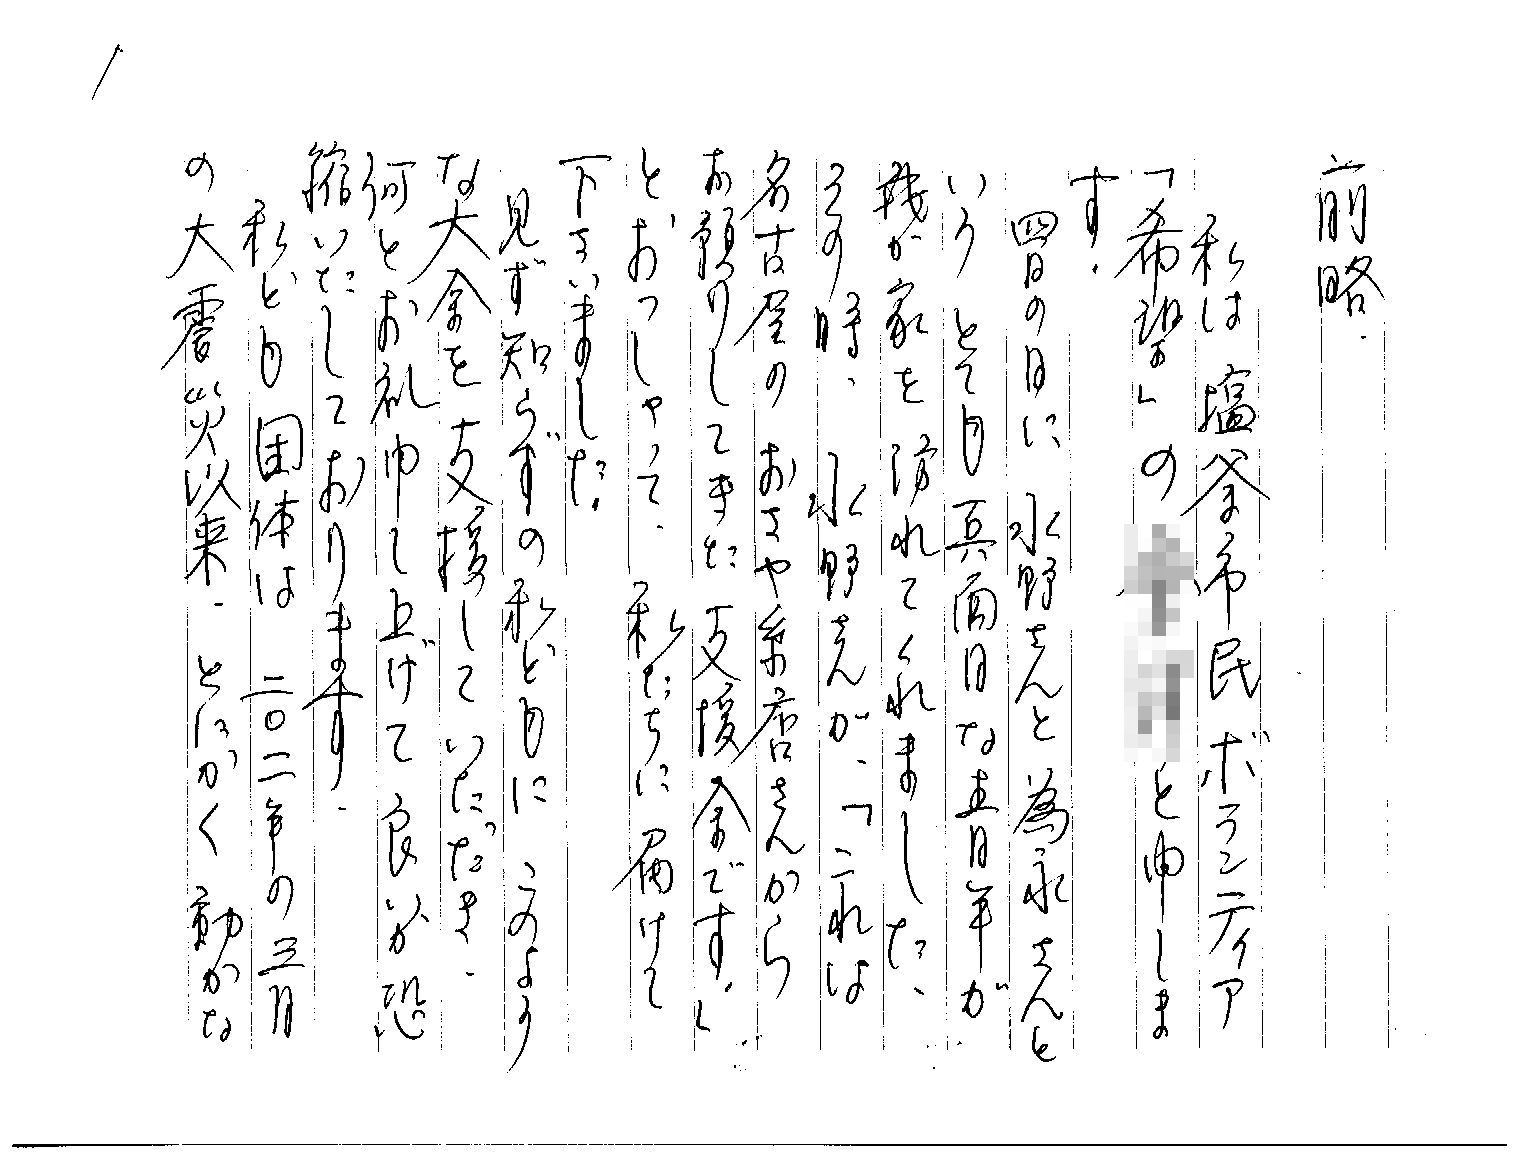 前略.
私は塩釜市民ボランティア
「希望」の と申しま
す.
四日の日に 水野さんと為永さんと
いうとても真面目な青年が
我が家を訪れてくれました.
その時、水野さんが、「これは
名古屋のおさや糸店さんから
お預りしてきた支援金です.」
とおっしゃって、私たちに届けて
下さいました.
見ず知らずの私どもに このよう
な大金を支援していただき、
何とお礼申し上げて良いか恐
縮いたしております.
私ども団体は 二〇一一年の三月
の大震災以来、とにかく動かな